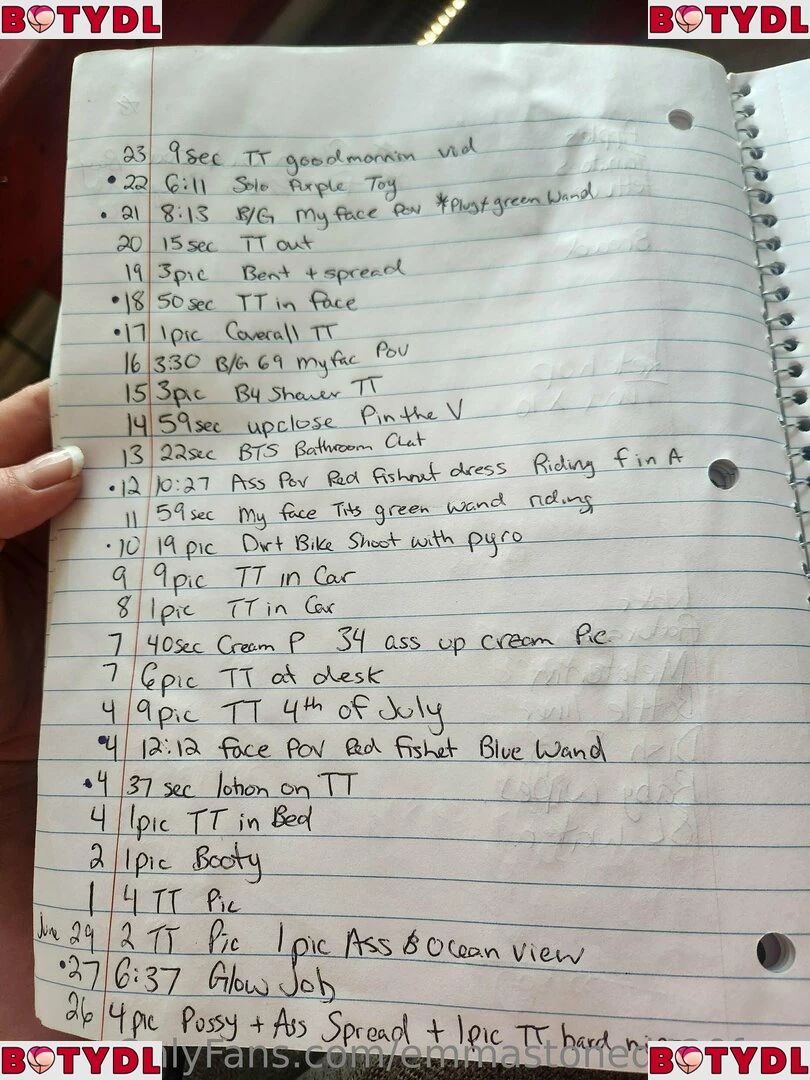 BOTYDL BOTYDL
23 9sec TT goodmornin vid
•22 6:11 Solo Purple Toy
•21 8:13 B/G My face Pov *Plug+green Wand
20 15sec TT out
19 3pic Bent + spread
•18 50sec TT in face
•17 1pic Coverall TT
16 3:30 B/G 69 my fac Pov
15 3pic B4 Shower TT
14 59sec upclose Pin the V
13 22sec BTS Bathroom Chat
•12 10:27 Ass Pov Red fishnet dress Riding f in A
11 59sec My face Tits green wand riding
•10 19pic Dirt Bike Shoot with pyro
9 9pic TT in Car
8 1pic TT in Car
7 40sec Cream P 34 ass up cream Pic
7 6pic TT at desk
4 9pic TT 4th of July
•4 12:12 face POV Red fishet Blue Wand
•4 37 sec lotion on TT
4 1pic TT in Bed
2 1pic Booty
1 4 TT Pic
June 29 2 TT Pic 1pic Ass & Ocean view
•27 6:37 Glow Job
26 4pic Pussy + Ass Spread + 1pic TT hard
BOTYDL BOTYDL